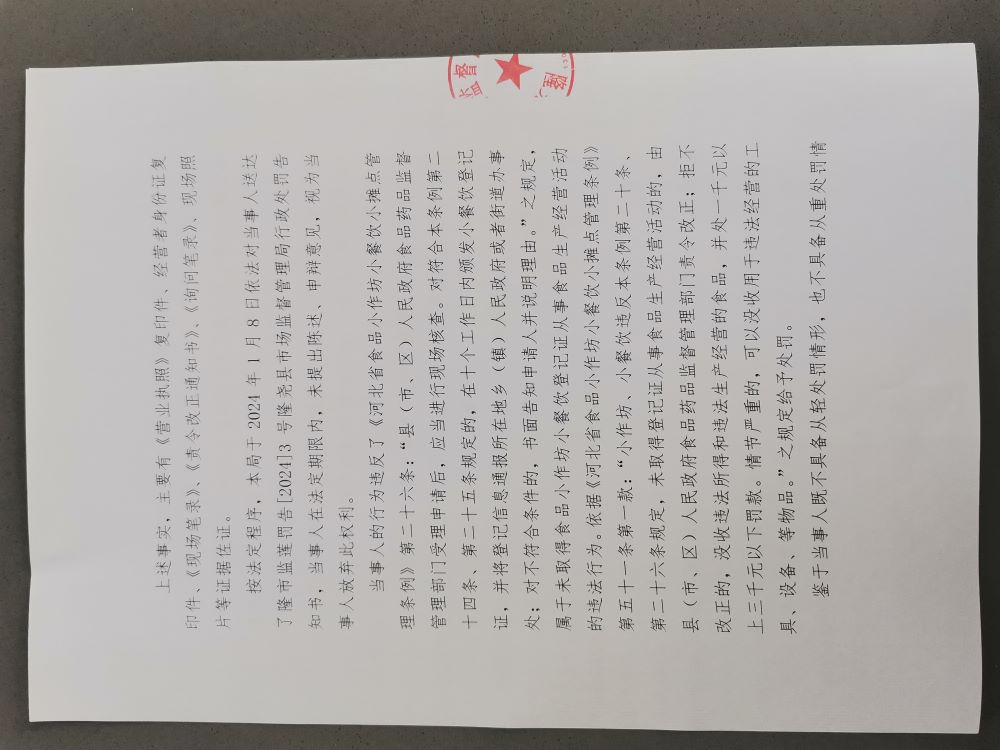 上述事实，主要有《营业执照》复印件、经营者身份证复
印件、《现场笔录》、《责令改正通知书》、《询问笔录》、现场照
片等证据佐证。
按法定程序，本局于 2024 年 1 月 8 日依法对当事人送达
了隆市监莲罚告[2024]3 号隆尧县市场监督管理局行政处罚告
知书，当事人在法定期限内，未提出陈述、申辩意见，视为当
事人放弃此权利。
当事人的行为违反了《河北省食品小作坊小餐饮小摊点管
理条例》第二十六条：“县（市、区）人民政府食品药品监督
管理部门受理申请后，应当进行现场核查。对符合本条例第二
十四条、第二十五条规定的，在十个工作日内颁发小餐饮登记
证，并将登记信息通报所在地乡（镇）人民政府或者街道办事
处；对不符合条件的，书面告知申请人并说明理由。”之规定，
属于未取得食品小作坊小餐饮登记证从事食品生产经营活动
的违法行为。依据《河北省食品小作坊小餐饮小摊点管理条例》
第五十一条第一款：“小作坊、小餐饮违反本条例第二十条、
第二十六条规定，未取得登记证从事食品生产经营活动的，由
县（市、区）人民政府食品药品监督管理部门责令改正；拒不
改正的，没收违法所得和违法生产经营的食品，并处一千元以
上三千元以下罚款。情节严重的，可以没收用于违法经营的工
具、设备、等物品。”之规定给予处罚。
鉴于当事人既不具备从轻处罚情形，也不具备从重处罚情
监督
隆
130